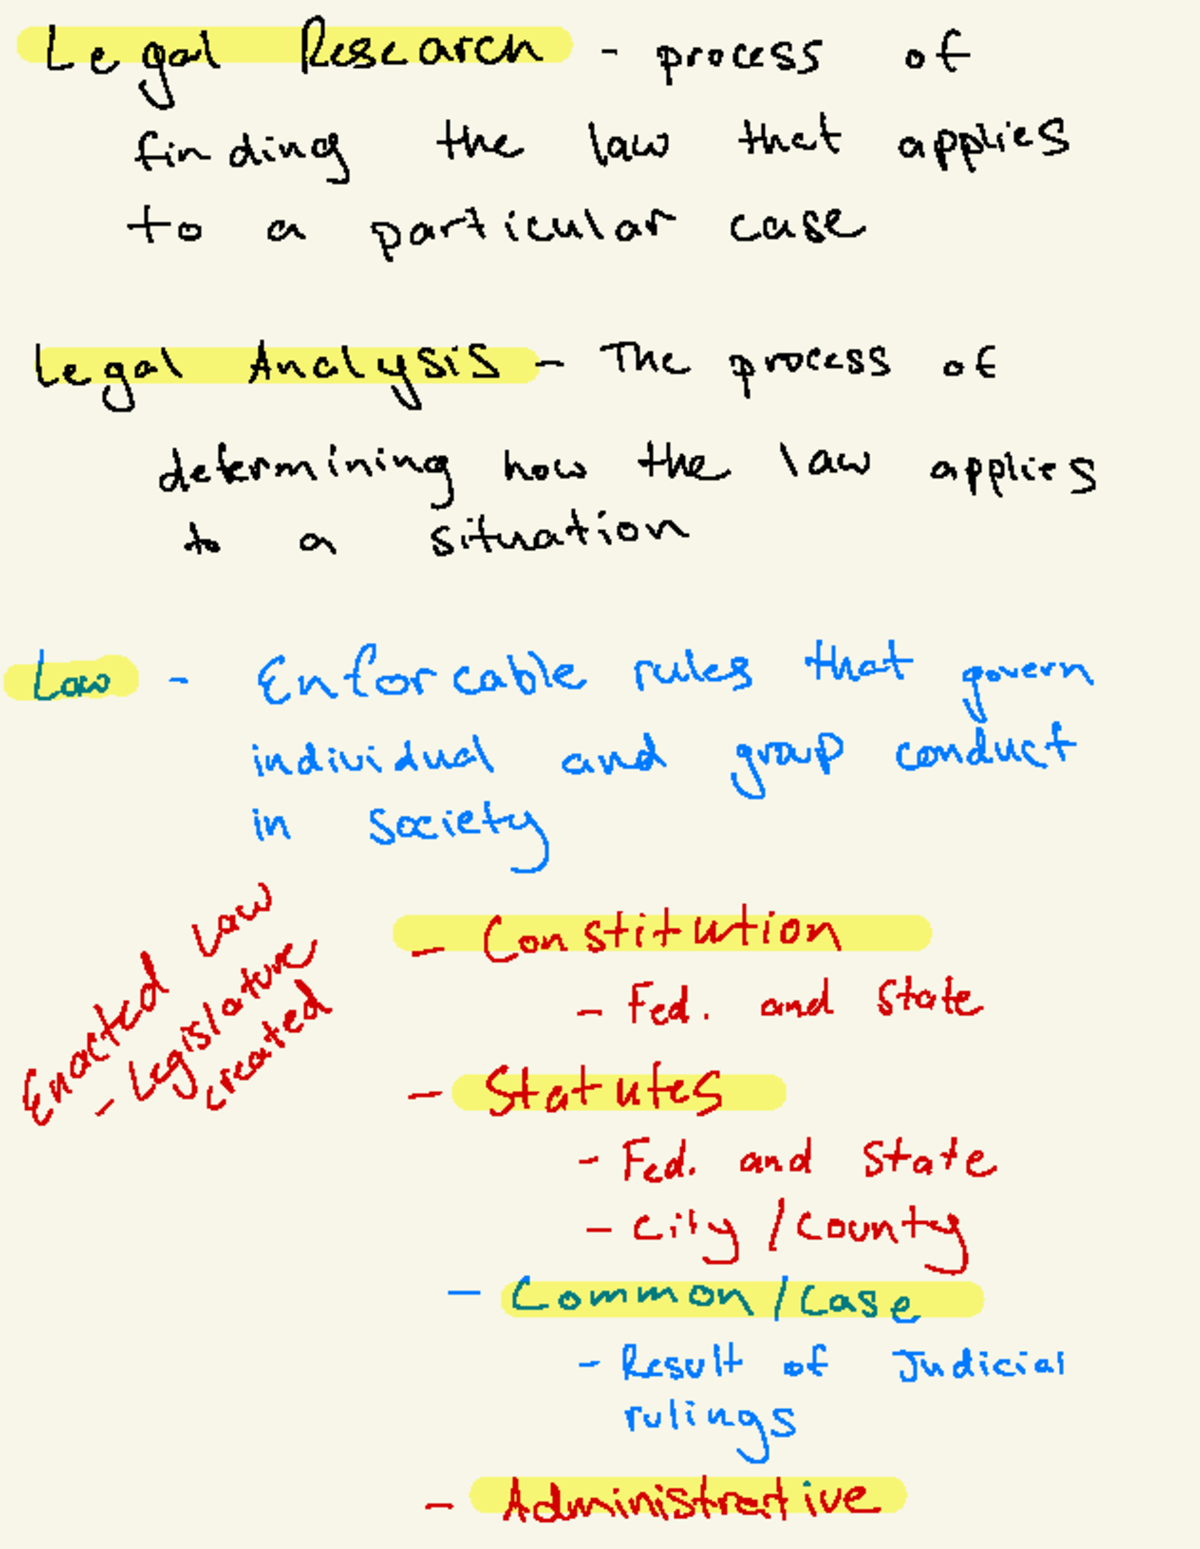 Legal Research - process of
finding the law that applies
to a particular case
Legal Analysis - The process of
determining how the law applies
to a situation
Law - Enforcable rules that govern
individual and group conduct
in society
Enacted Law
- Legislature
created
- Constitution
- Fed. and State
- Statutes
- Fed. and State
- City / County
- Common / Case
- Result of Judicial
rulings
- Administrative